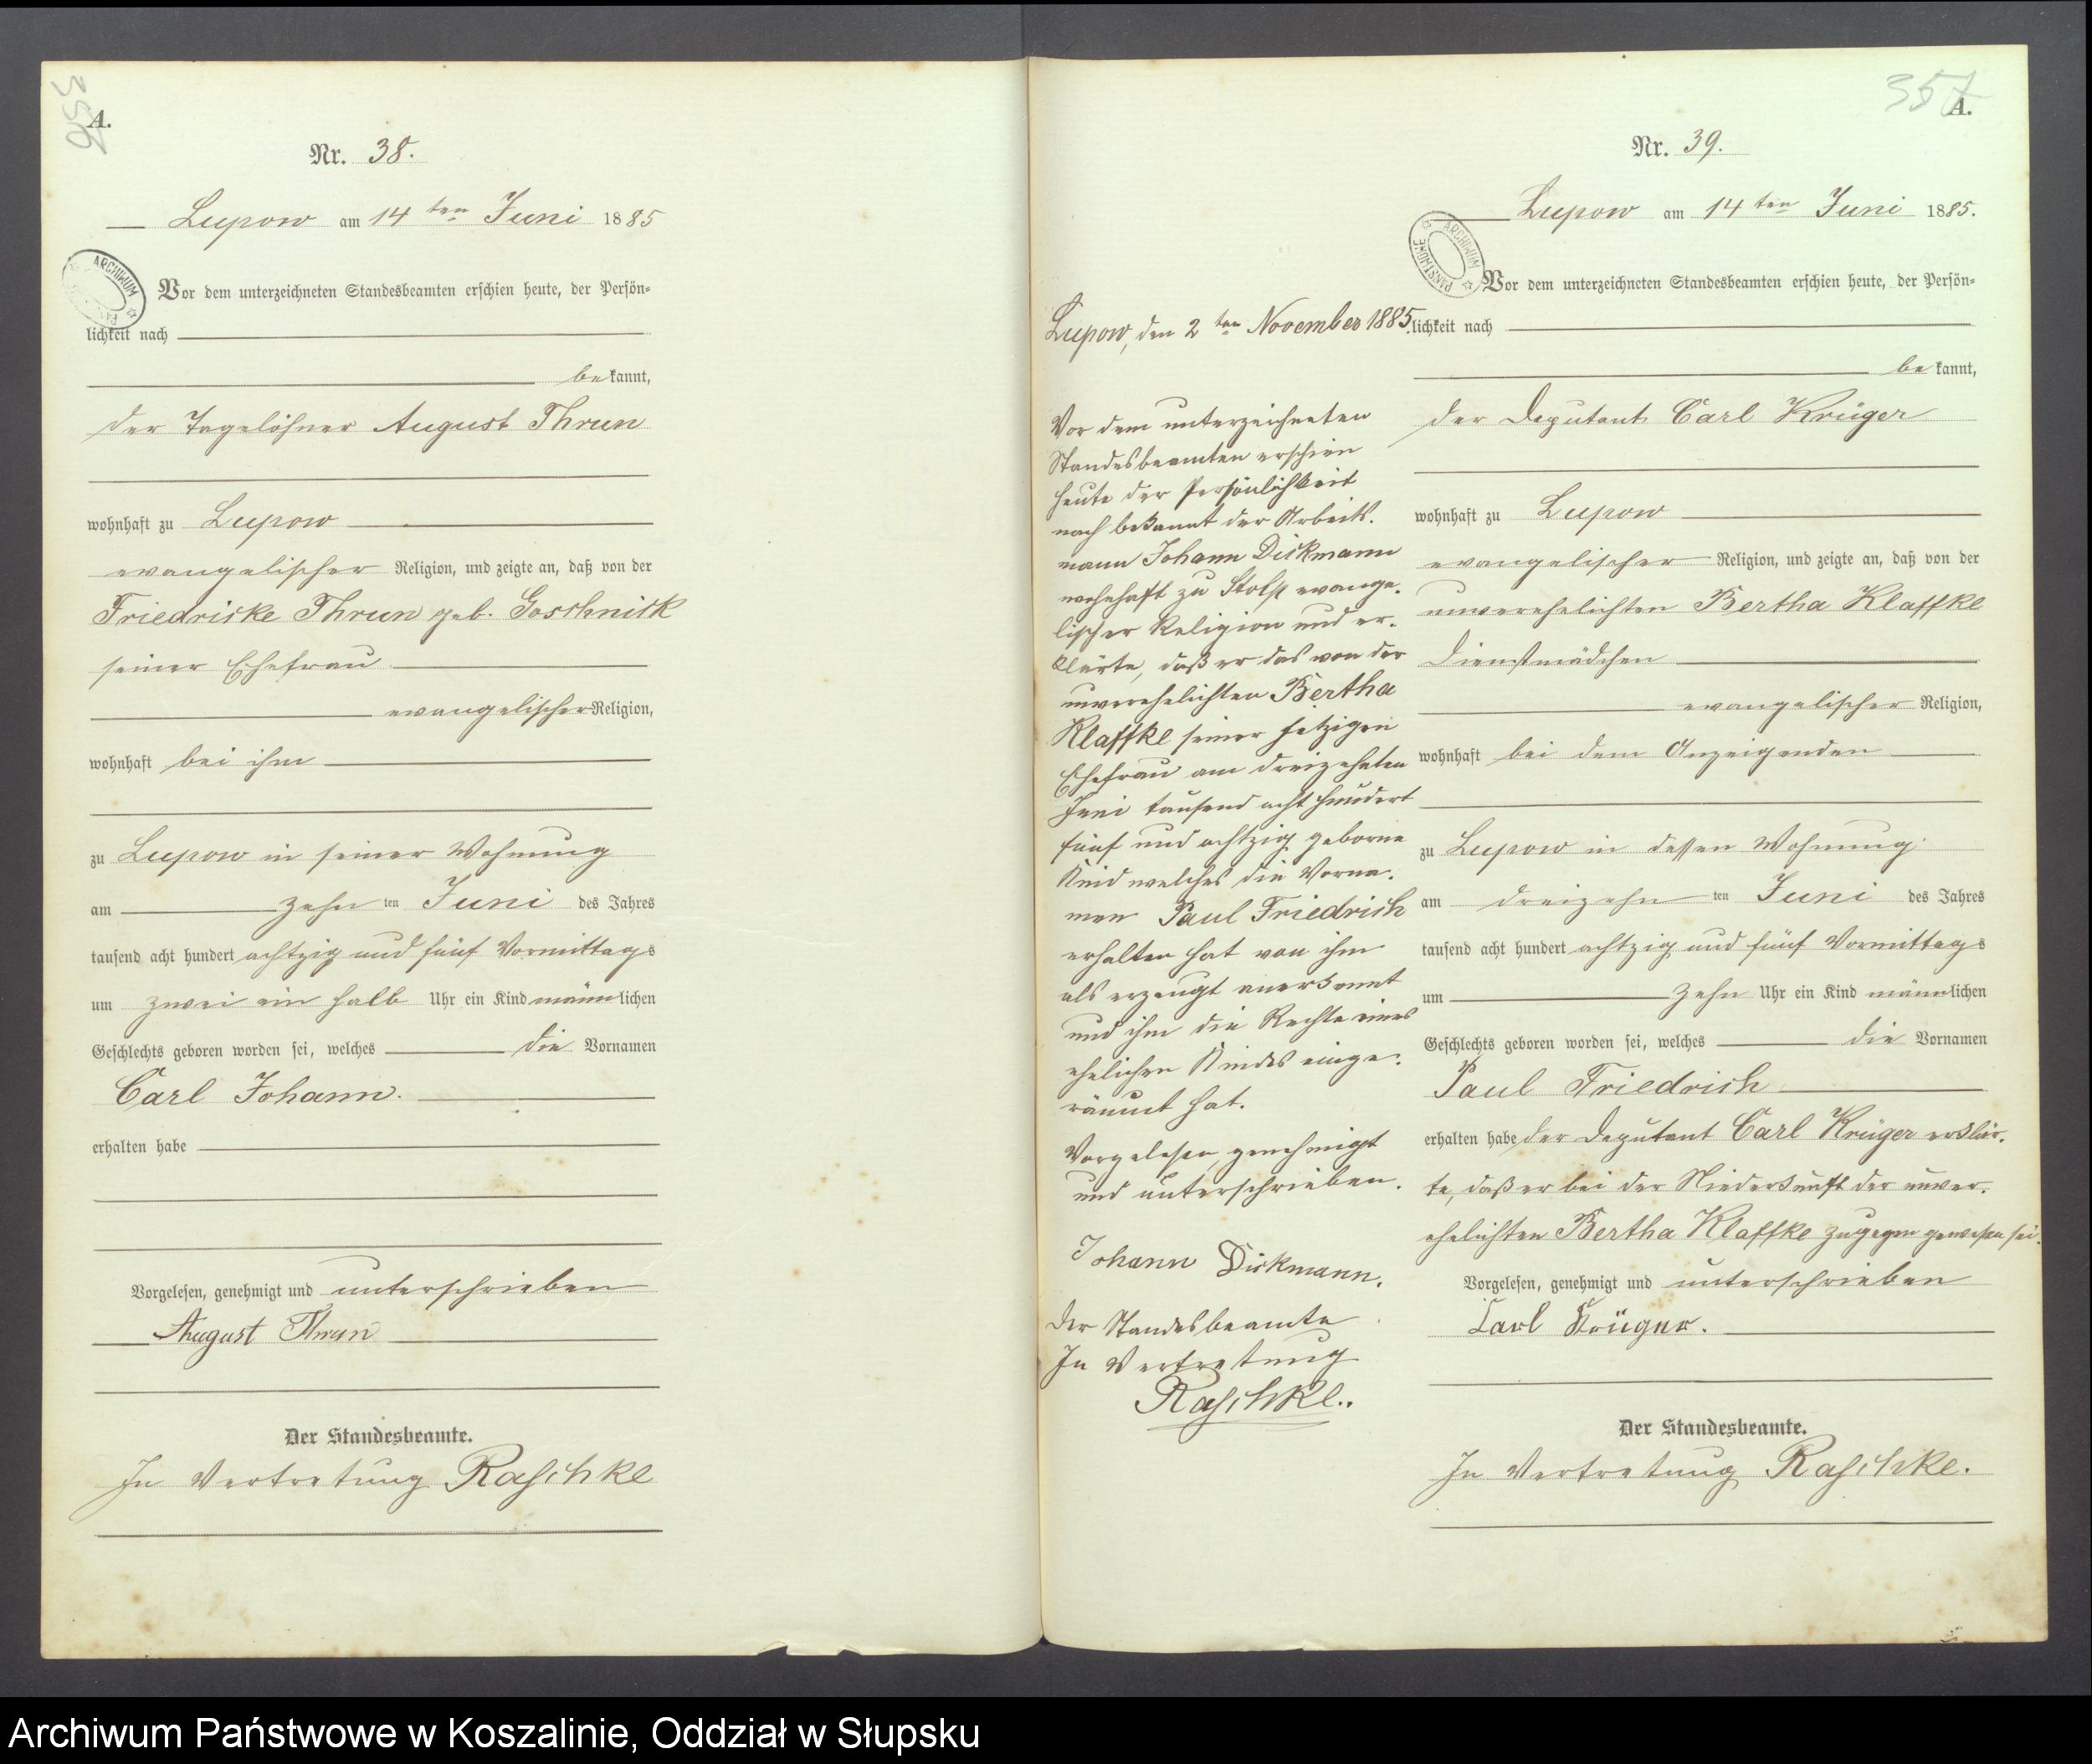 356
A.
Nr. 38.
Lupow am 14 ten Juni 1885
ARCHIWUM
Vor dem unterzeichneten Standesbeamten erschien heute, der Persön-
lichkeit nach
bekannt,
der Tagelöhner August Thrun
wohnhaft zu Lupow
evangelischer Religion, und zeigte an, daß von der
Friedricke Thrun geb. Goschnick
seiner Ehefrau
evangelischer Religion,
wohnhaft bei ihm
zu Lupow in seiner Wohnung
am zehn ten Juni des Jahres
tausend acht hundert achtzig und fünf Vormittags
um zwei ein halb Uhr ein Kind männlichen
Geschlechts geboren worden sei, welches die Vornamen
Carl Johann.
erhalten habe
Vorgelesen, genehmigt und unterschrieben
August Thrun
Der Standesbeamte.
In Vertretung Raschke
357
A.
Nr. 39.
Lupow am 14 ten Juni 1885.
ARCHIWUM PAŃSTWOWE
Vor dem unterzeichneten Standesbeamten erschien heute, der Persön-
lichkeit nach
bekannt,
der Deputant Carl Krüger
wohnhaft zu Lupow
evangelischer Religion, und zeigte an, daß von der
unverehelichten Bertha Klaffke
Dienstmädchen
evangelischer Religion,
wohnhaft bei dem Anzeigenden
zu Lupow in dessen Wohnung
am dreizehn ten Juni des Jahres
tausend acht hundert achtzig und fünf Vormittags
um zehn Uhr ein Kind männlichen
Geschlechts geboren worden sei, welches die Vornamen
Paul Friedrich
erhalten habe der Deputant Carl Krüger erklär-
te, daß er bei der Niederkunft der unver-
ehelichten Bertha Klaffke zugegen gewesen sei.
Vorgelesen, genehmigt und unterschrieben
Carl Krüger.
Der Standesbeamte.
In Vertretung Raschke.
Lupow, den 2 ten November 1885.
Vor dem unterzeichneten
Standesbeamten erschien
heute der Persönlichkeit
nach bekannt der Arbeits-
mann Johann Dickmann
wohnhaft zu Stolp evange-
lischer Religion und er-
klärte, daß er das von der
unverehelichten Bertha
Klaffke seiner jetzigen
Ehefrau am dreizehnten
Juni tausend acht hundert
fünf und achtzig geborne
Kind welches die Vorna-
men Paul Friedrich
erhalten hat von ihm
als erzeugt anerkannt
und ihm die Rechte eines
ehelichen Kindes einge-
räumt hat.
Vorgelesen, genehmigt
und unterschrieben.
Johann Dickmann.
Der Standesbeamte
In Vertretung
Raschke..
Archiwum Państwowe w Koszalinie, Oddział w Słupsku